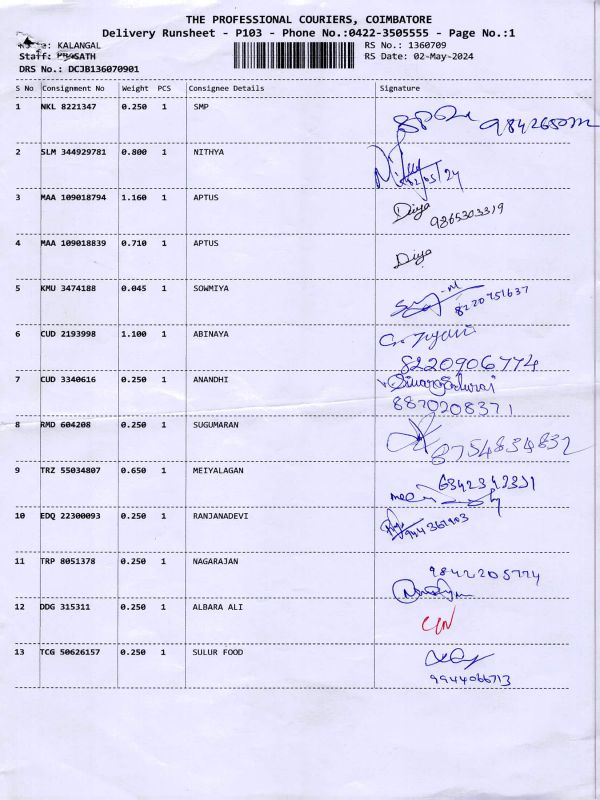 THE PROFESSIONAL COURIERS, COIMBATORE
Delivery Runsheet - P103 - Phone No.:0422-3505555 - Page No.:1
KALANGAL RS No.: 1360709
Staff: PRASATH RS Date: 02-May-2024
DRS No.: DCJB136070901
S No Consignment No Weight PCS Consignee Details Signature
1 NKL 8221347 0.250 1 SMP
2 SLM 344929781 0.800 1 NITHYA
02/05/24
3 MAA 109018794 1.160 1 APTUS Diya
9865303319
4 MAA 109018839 0.710 1 APTUS
Diya
5 KMU 3474188 0.045 1 SOWMIYA
8220751637
6 CUD 2193998 1.100 1 ABINAYA
8220906774
7 CUD 3340616 0.250 1 ANANDHI
8870208371
8 RMD 604208 0.250 1 SUGUMARAN
8754834832
9 TRZ 55034807 0.650 1 MEIYALAGAN
10 EDQ 22300093 0.250 1 RANJANADEVI
11 TRP 8051378 0.250 1 NAGARAJAN
9842205774
12 DDG 315311 0.250 1 ALBARA ALI
13 TCG 50626157 0.250 1 SULUR FOOD
9944066713